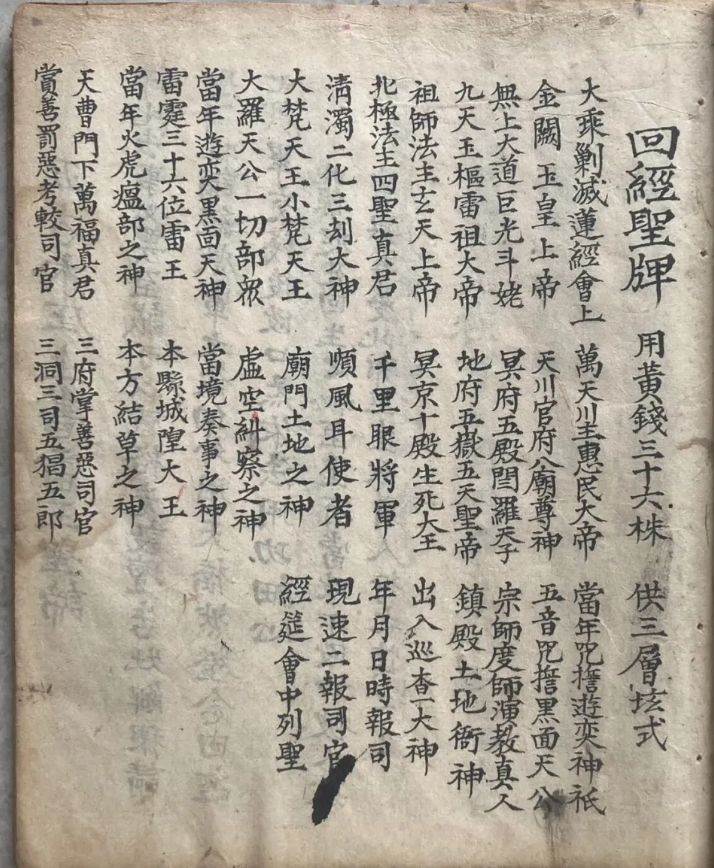 回經聖牌 用黃錢三十六株 供三層垓式
大乘剿滅蓮經會上 萬天川主惠民大帝 當年咒擔遊奕神祇
金闕玉皇上帝 天川官府八廟尊神 五音咒擔黑面天公
無上大道巨光斗姥 冥府五殿閻羅天子 宗師度師演教真人
九天玉樞雷祖大帝 地府五嶽五天聖帝 鎮殿土地衙神
祖師法主玄天上帝 冥京十殿生死大王 出入巡查一大神
北極法主四聖真君 千里眼將軍 年月日時報司
清濁二化三刼大神 順風耳使者 現速二報司官
大梵天王小梵天王 廟門土地之神 經筵會中列聖
大羅天公一切部眾 虛空糾察之神
當年遊奕黑面天神 當境奏事之神
雷霆三十六位雷王 本縣城隍大王
當年火虎瘟部之神 本方結草之神
天曹門下萬福真君 三府掌善惡司官
賞善罰惡考較司官 三洞三司五猖五郎